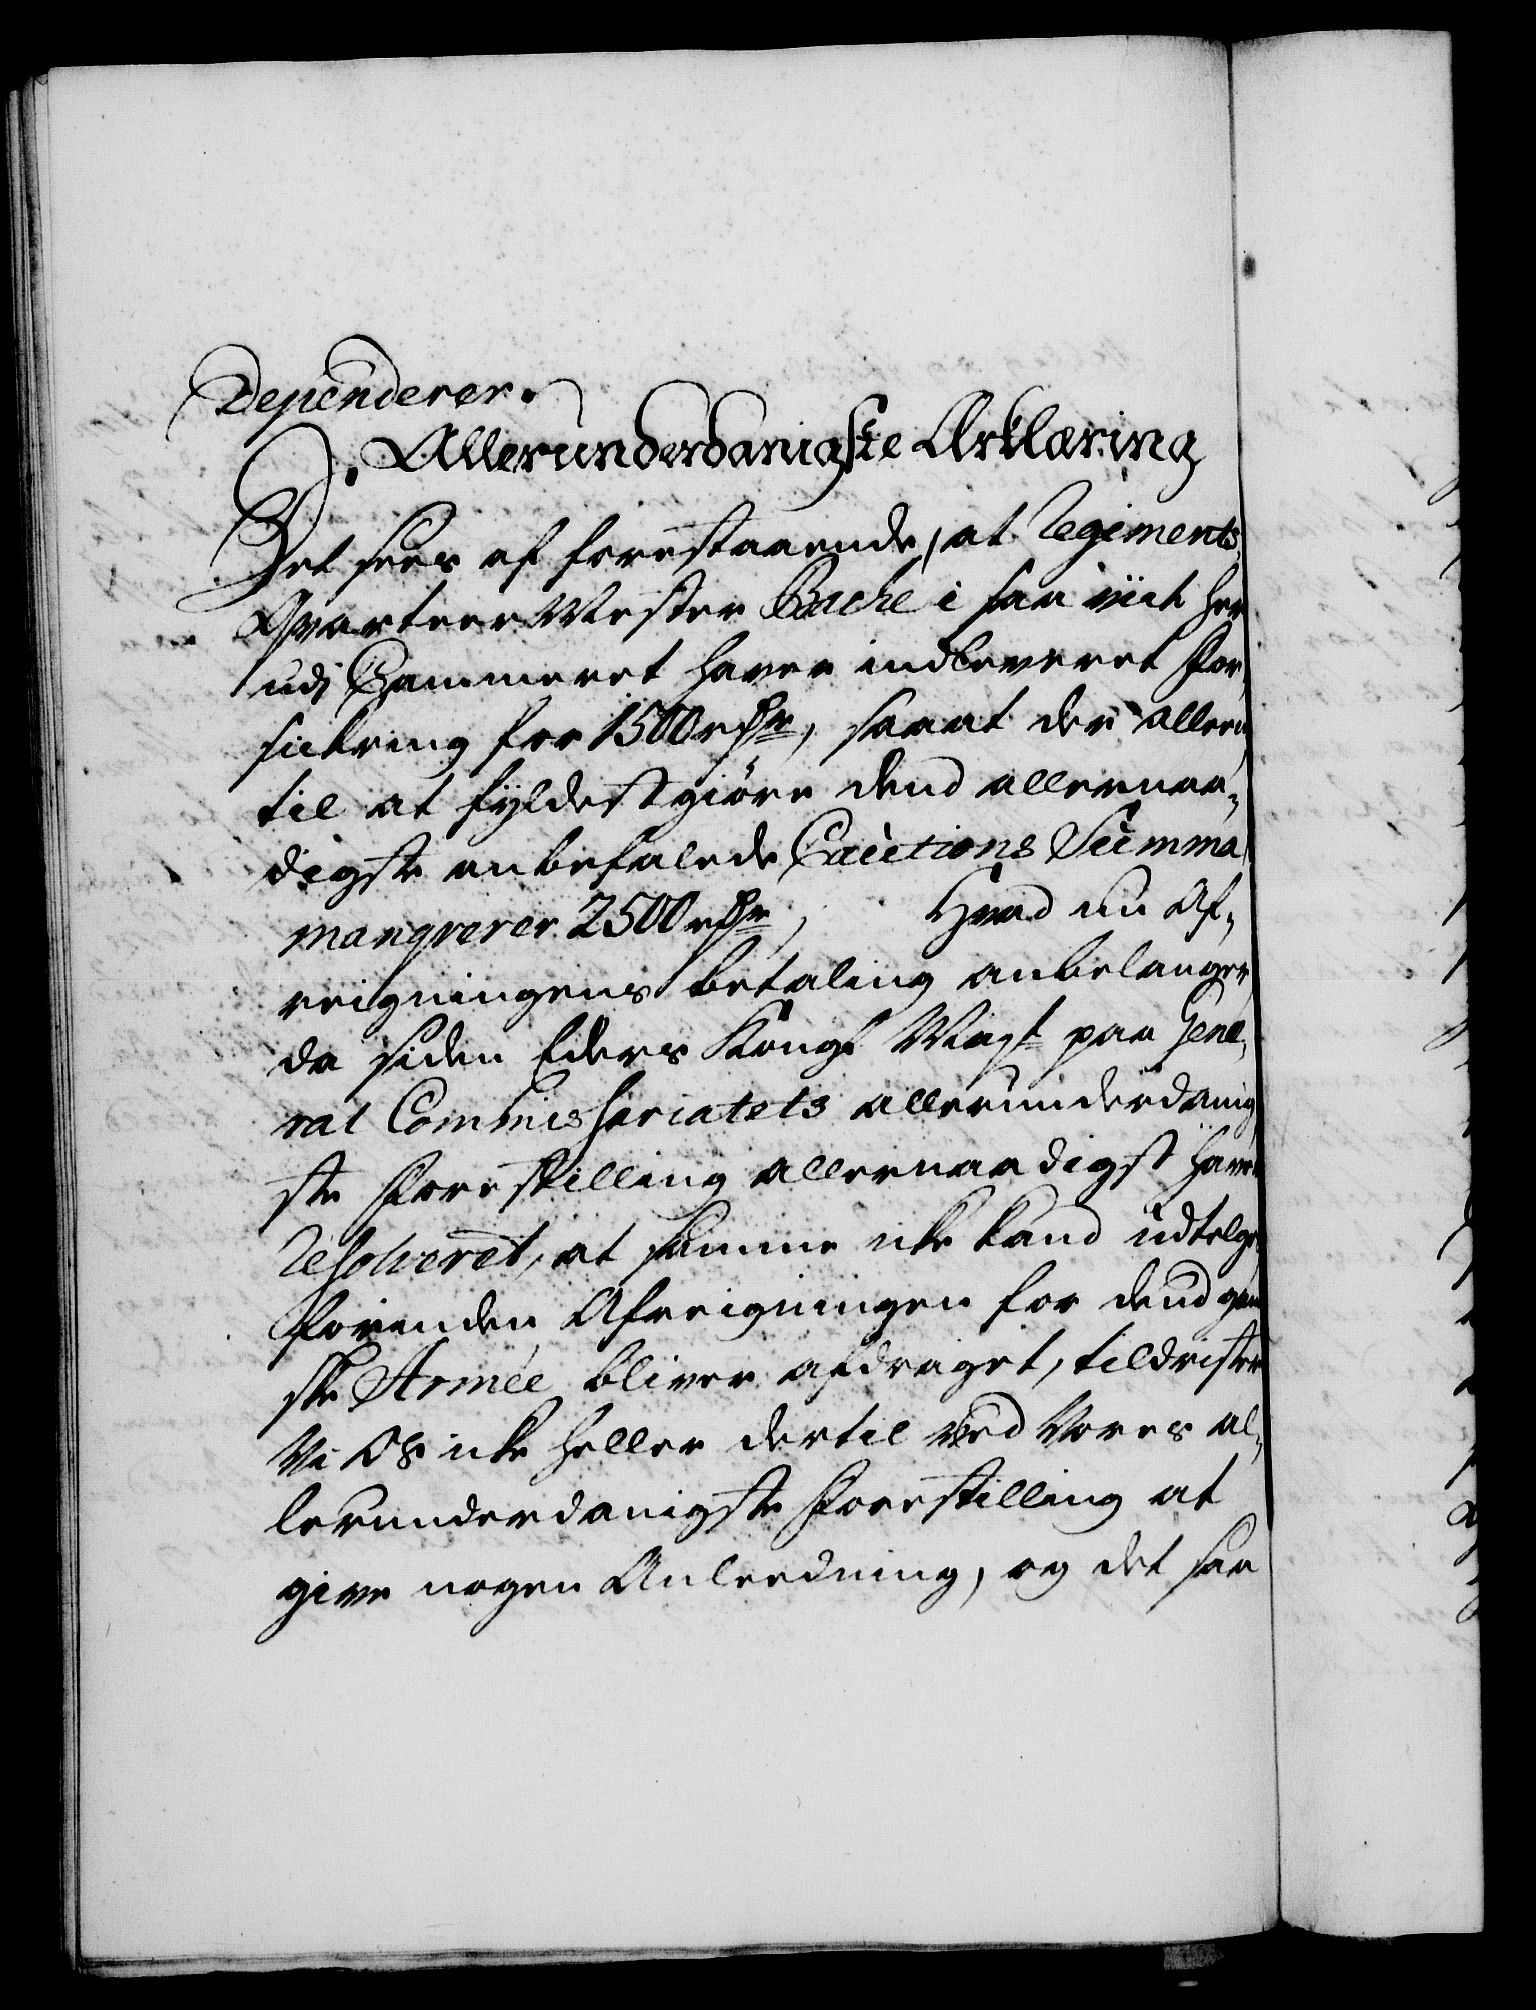 Dependerer.
Allerunderdanigste Erklæring
Det sees af forestaaende, at Regiments-
Qvarteer Mester Bache i saa viit her
udj Cammeret haver indleveret For-
sickring for 1500 rdr, saa at der allene
til at fyldestgiøre dend allernaa-
digste anbefalede Cautions Summa
manqverer 2500 rdr, Hvad nu Af-
reigningens betaling anbelanger,
da siden Eders Kongl Mayt paa Gene-
ral Commissariatets allerunderdanig-
ste Forestilling allernaadigst haver
Resolveret, at samme icke kand udtelges
forinden Afreigningen for dend gan-
ske Armée bliver afdraget, tildrister
Vi Os icke heller dertil ved Vores al-
lerunderdanigste Forestilling at
give nogen Anleedning, og det saa